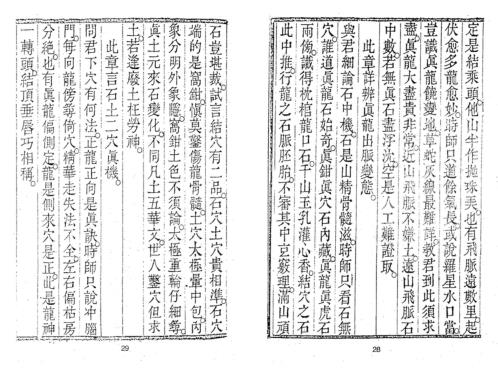 定是結乘頭他山半作拋珠美也有飛脈遠數里起
伏愈多龍愈妙時師只道條氣長或說羅星水口當
豈識眞龍饒變地草蛇灰線最難詳教君到此須求
盡眞龍大盡貴非常近山飛脈不嫌土遠山飛脈石
中數若無眞石盡浮沈空是人工難證取
此章詳辨眞龍出脈變態
與君細論石中機石是山精骨髓滋時師只看石無
穴誰道眞龍石始奇眞鉗眞穴石內藏眞龍眞虎石
兩傍識得枕棺龍口石千山玉乳灌心香結穴之石
此中推行龍之石脈胚胎不審其中豆竅理滿山頑
28
石豈堪裁試言結穴有二品石穴土穴貴相準石穴
端的是窩鉗愼莫鑿傷龍骨髓土穴太極暈中包內
象分明外象隱窩鉗土色不須論太極重輪仔細尋
眞土元來石變化不同凡土五華文世人鑿穴但求
土若逢廢土枉勞神
此章言石土二穴眞機
問君下穴有何法正龍正向是眞訣時師只說冲腦
門每向龍傍尋倚穴精華走失法不全左右偏枯房
分絕也有眞龍偏側定龍是側來穴是正此是龍神
一轉頭結頂垂唇巧相稱
29